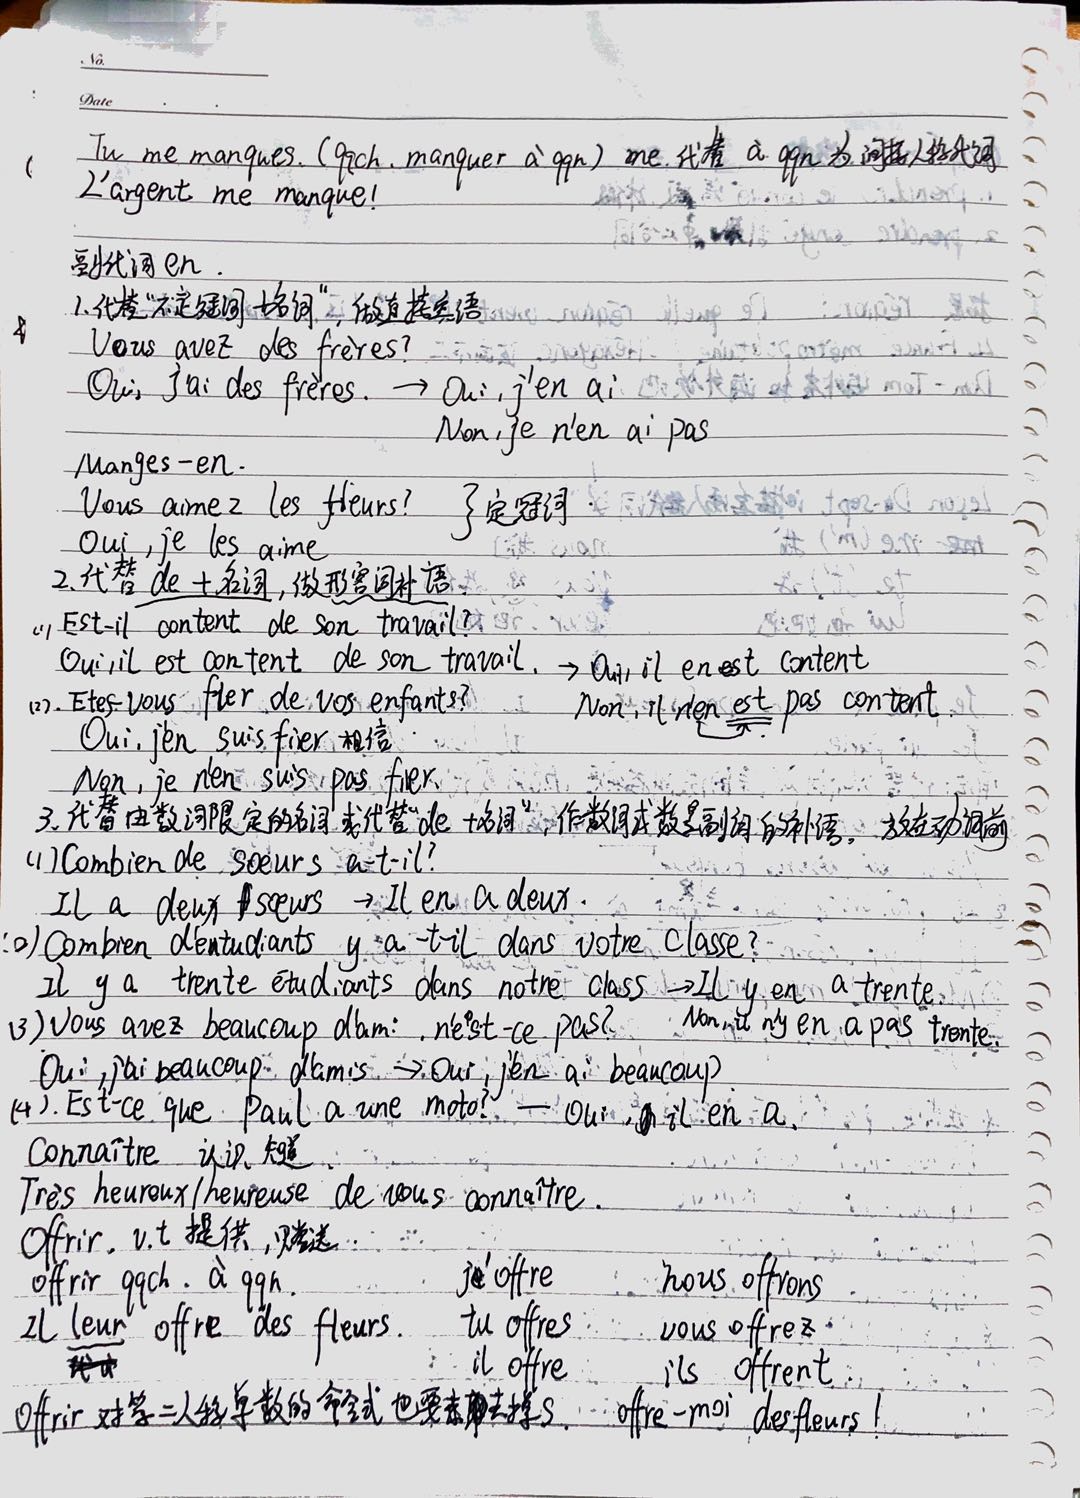 No.
Date
Tu me manques. (qqch. manquer à qqn) me 代替 à qqn 为 间接人称代词
L'argent me manque!
副代词 en.
1.代替"不定冠词+名词", 做直接宾语
Vous avez des frères?
Oui, j'ai des frères. → Oui, j'en ai
Non, je n'en ai pas
Manges-en.
Vous aimez les fleurs? } 定冠词
Oui, je les aime
2.代替 de + 名词, 做形容词补语
(1) Est-il content de son travail?
Oui, il est content de son travail. → Oui, il en est content
(2). Etes-vous fier de vos enfants? Non, il n'en est pas content.
Oui, j'en suis fier 相信
Non, je n'en suis pas fier.
3.代替由数词限定的名词或代替"de+名词", 作数词或数量副词的补语. 放在动词前
(1) Combien de sœurs a-t-il?
Il a deux sœurs → Il en a deux.
(2) Combien d'entudiants y a-t-il dans votre classe?
Il y a trente étudiants dans notre class → Il y en a trente.
(3) Vous avez beaucoup d'ami. n'est-ce pas? Non, il n'y en a pas trente.
Oui, j'ai beaucoup d'amis → Oui, j'en ai beaucoup.
(4). Est-ce que Paul a une moto? — Oui, il en a.
Connaître 认识、知道
Très heuroux/heureuse de vous connaître.
Offrir. v.t 提供, 赠送
offrir qqch. à qqn. j'offre nous offrons
Il leur offre des fleurs. tu offres vous offrez
il offre ils offrent
Offrir 对第二人称单数的命令式也要去掉s. offre-moi des fleurs!